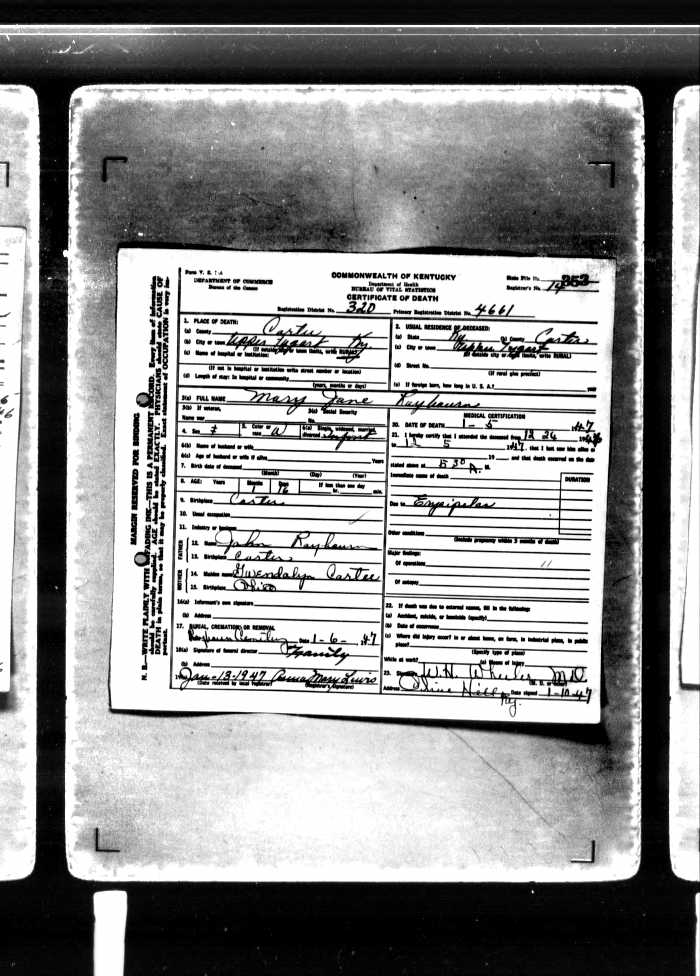 Form V. S. 1-A
DEPARTMENT OF COMMERCE
Bureau of the Census
COMMONWEALTH OF KENTUCKY
Department of Health
BUREAU OF VITAL STATISTICS
CERTIFICATE OF DEATH
State File No. 353
Registrar's No. 14
Registration District No. 320 Primary Registration District No. 4661
MARGIN RESERVED FOR BINDING
N. B.—WRITE PLAINLY WITH UNFADING INK—THIS IS A PERMANENT RECORD. Every item of information
should be carefully supplied. AGE should be stated EXACTLY. PHYSICIANS should state CAUSE OF
DEATH in plain terms, so that it may be properly classified. Exact statement of OCCUPATION is very im-
portant.
1. PLACE OF DEATH:
(a) County Carter
(b) City or town Upper Tygart Ky
(If outside city or town limits, write RURAL)
(c) Name of hospital or institution:
(If not in hospital or institution write street number or location)
(d) Length of stay: In hospital or community
(years, months or days)
2. USUAL RESIDENCE OF DECEASED:
(a) State Ky (b) County Carter
(c) City or town Tygart
(If outside city or town limits, write RURAL)
(d) Street No.
(If rural give precinct)
(e) If foreign born, how long in U. S. A.? year
3(a) FULL NAME Mary Jane Raybourn
3(b) If veteran,
Name war
3(c) Social Security
No.
4. Sex F
5. Color or
race W
6(a) Single, widowed, married,
divorced Infant
6(b) Name of husband or wife
6(c) Age of husband or wife if alive Years
7. Birth date of deceased
(Month) (Day) (Year)
8. AGE: Years Months Days If less than one day
1 16 hr. min.
9. Birthplace Carter
10. Usual occupation
11. Industry or business
FATHER
12. Name John Raybourn
13. Birthplace Carter
MOTHER
14. Maiden name Gwendalyn Cartee
15. Birthplace Ohio
16(a) Informant's own signature
(b) Address
17. BURIAL, CREMATION OR REMOVAL
Date 1-6-, 47
18(a) Signature of funeral director Family
(b) Address
19. Jan-13-1947 Mary Lewis
(Date received by local registrar) (Registrar's signature)
MEDICAL CERTIFICATION
20. DATE OF DEATH 1-5 47
21. I hereby certify that I attended the deceased from 12 26, 1946
to 1 5, 1947, that I last saw him alive on
19 and that death occurred on the date
stated above at 5 30 A. M.
Immediate cause of death
DURATION
Due to Erysipelas
Other conditions
(Include pregnancy within 3 months of death)
Major findings:
Of operations "
Of autopsy
22. If death was due to external causes, fill in the following:
(a) Accident, suicide, or homicide (specify)
(b) Date of occurrence
(c) Where did injury occur? in or about home, on farm, in industrial place, in public
place?
(Specify type of place)
While at work? (e) Means of injury
23. Signature W. H. Wheeler M.D.
(M. D. or other)
Address Olive Hill Ky. Date signed 1-10-47